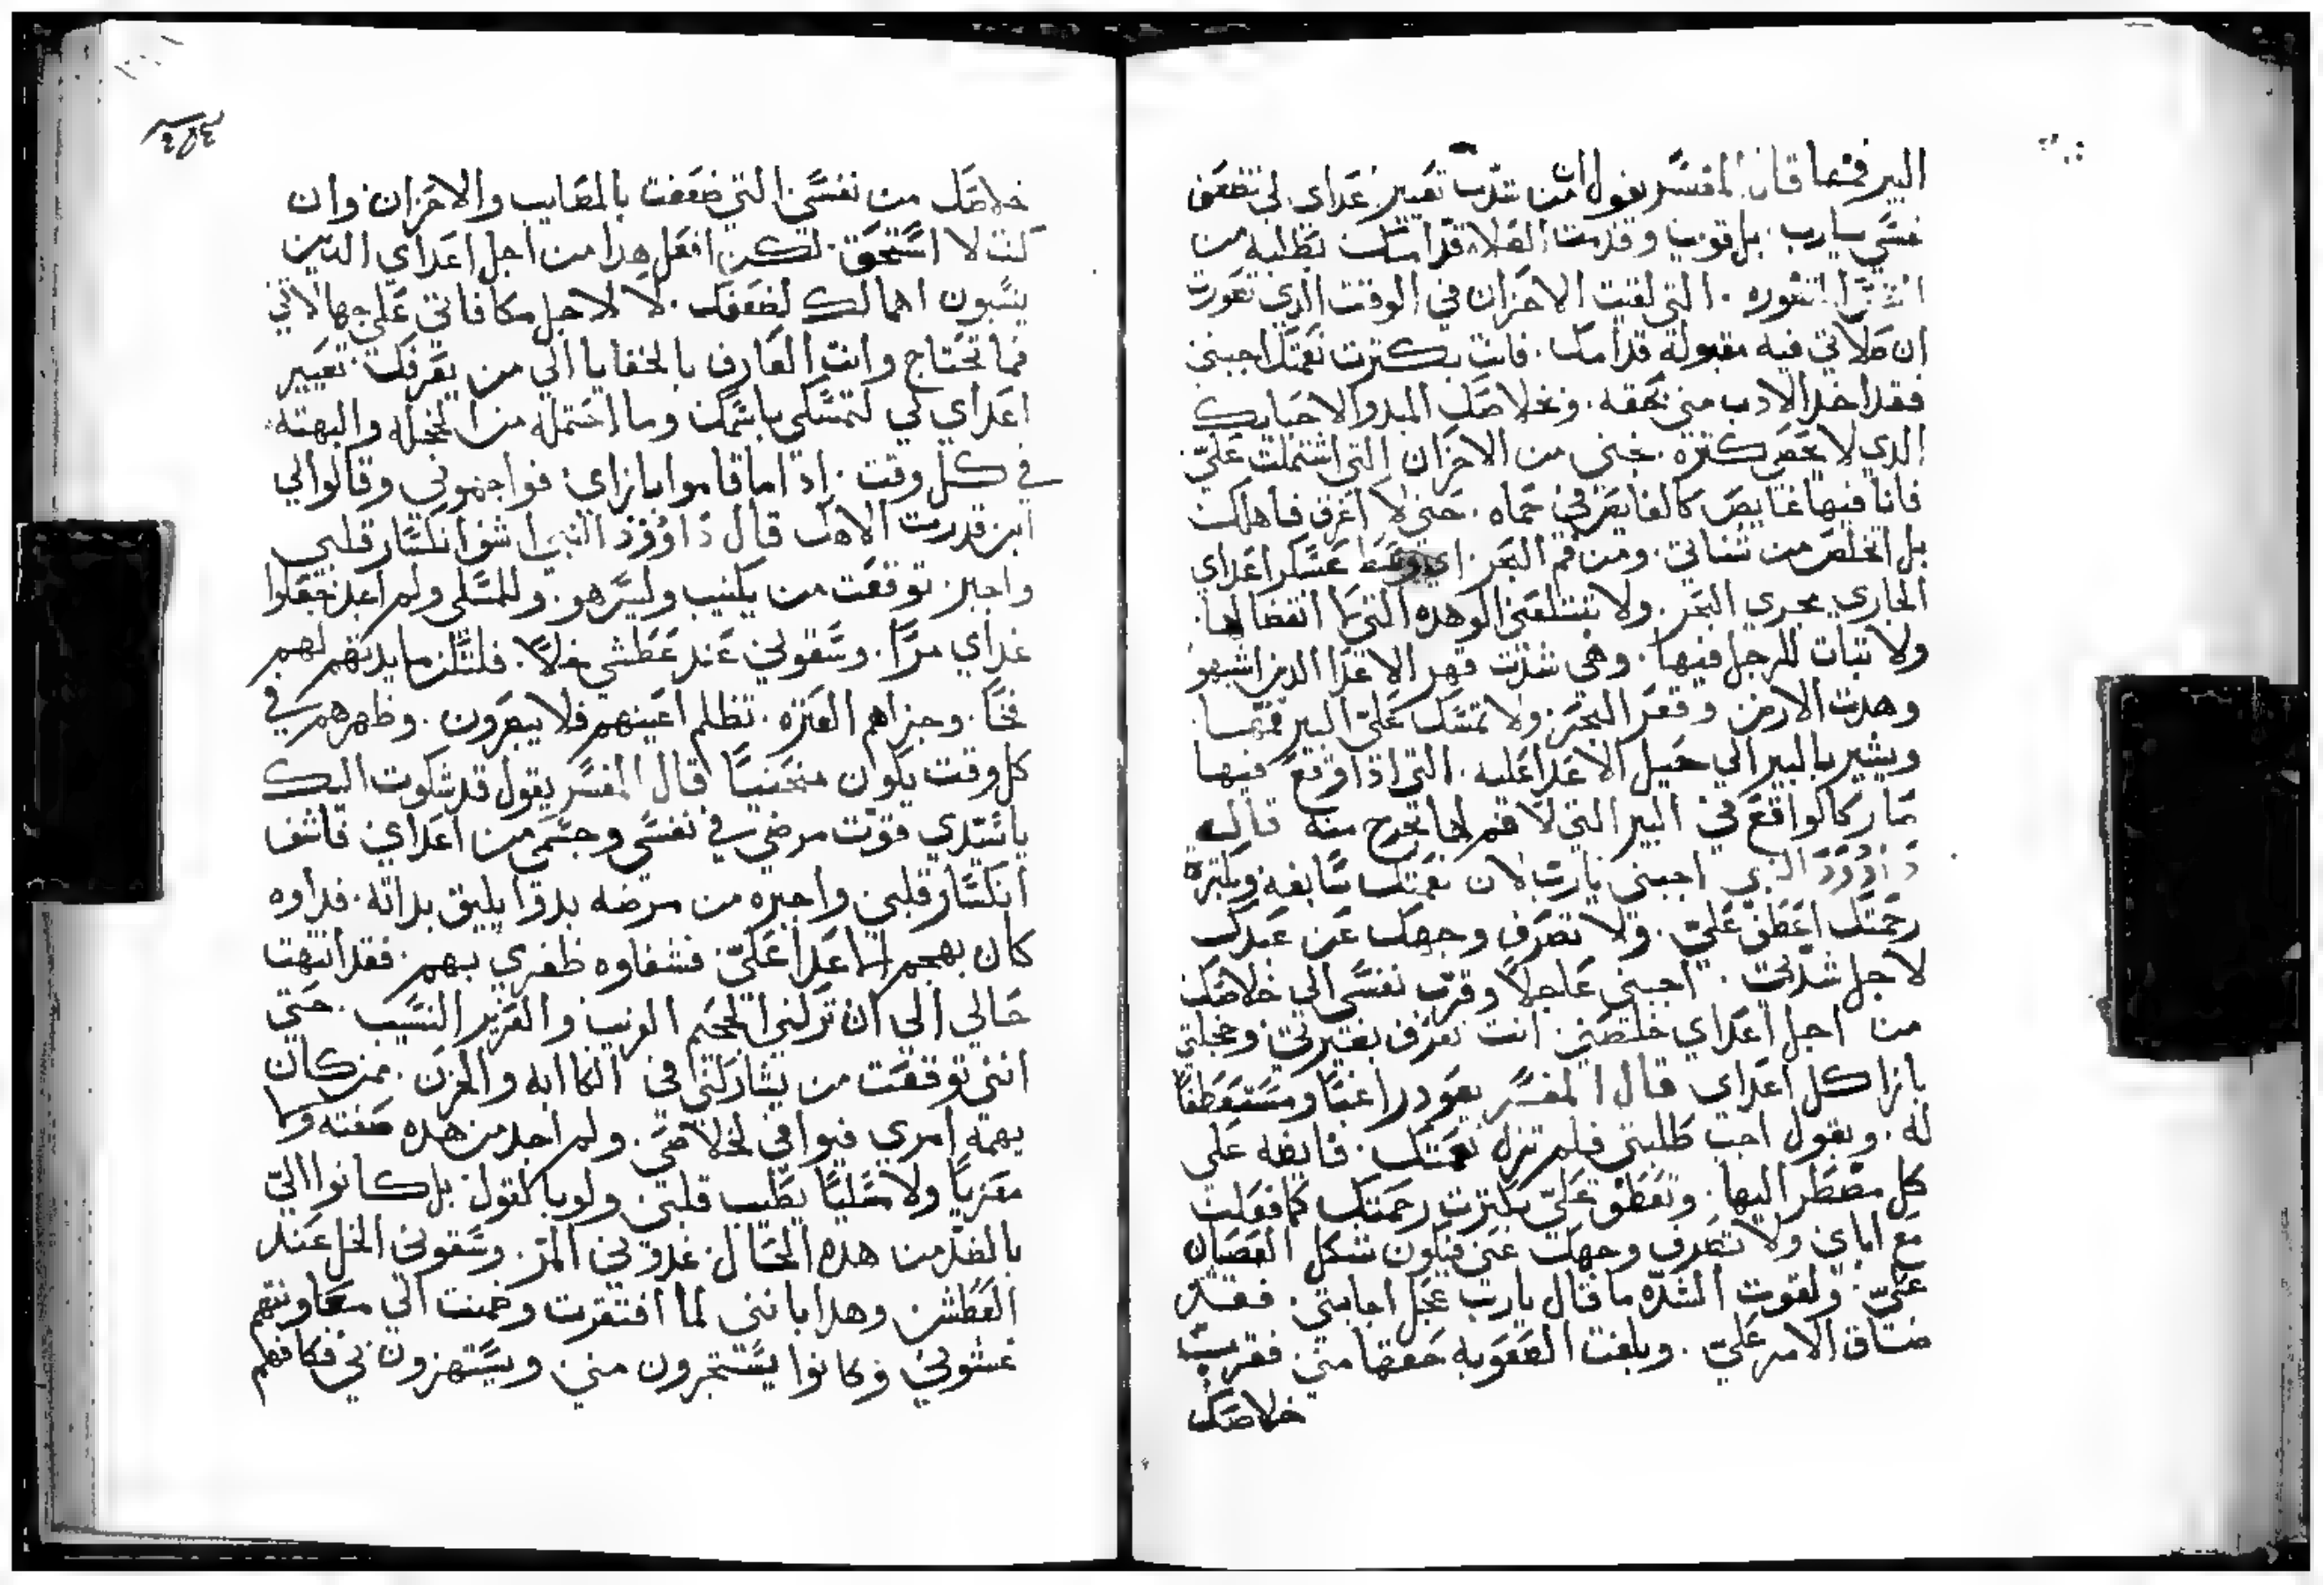 البير فمها قال المفسر يقول ان من شدت تعيير اعداي لي تضعف
نفسي يارب بل قويت وقدمت الصلاه قدامك تطلبه من
التي لقيت الاحزان في الوقت الدي تعودت
ان صلاتي فيه مقبوله قدامك . فانت بكترت نعمتك اجبني
فقد اخد الادب مني بحقه . وبخلاصك المبدول لاحبابك
الدي لا يحصى كتره . نجني من الاحزان التي اشتملت علي
فانا فيها غايص كالغايص في حماه . حتى لا اغرق فاهلك
بل اتخلص من شناتي . ومن قم البحر . اي وسط عسكر اعداي
الجاري مجري البحر . ولا تبتلعني الوهده التي لا انقضا لها .
ولا تبات للرجل فيها . وهى شدت قهر الاعدا الدين اشبهو
وهدت الارض وقعر البحر . ولا تمسك علي البير فمها
ويشير بالبير الي حيل الاعدا عليه . التي اذا وقع فيها
صار كالواقع في البير التي لا فم لها تخرج منه قال
داوود النبي اجبني يارب لان نعمتك سابغه وبكتره
رحمتك اعطف علي . ولا تصرف وجهك عن عبدك
لاجل شدتي . اجبني عاجلا وقرب نفسي الي خلاصك
من اجل اعداي خلصني . انت تعرف بعيرتي وخجلتي
بازا كل اعداي قال المفسر يعود راغبا ومستعطفا
له . ويقول اجب طلبتي فلم تزل نعمتك . فايضه علي
كل مضطر اليها . وتعطف علي بكترت رحمتك كما فعلت
مع اباي ولا تصرف وجهك عني فيكون شكل الغضبان
علي . ولقوت الشده ما قال يارب عجل اجابتي . فقد
ضاق الامر علي . وبلغت العقوبه حقها مني . فقرب
خلاصك
خلاصك من نفسي التي ضعفت بالمصايب والاحزان وان
كنت لا استحق . لكن افعل هدا من اجل اعداي الدين
ينسبون اهمالك لضعفك . لا لاجل مكافاتي علي جهالاتي
فما تحتاج وانت العارف بالخفايا الي من يعرفك تعيير
اعداي لي لتمسكي باسمك وما احتمله من الخجله والبهته
في كل وقت . اد اما قاموا بازاي فواجهوني وقالوا لي
اين قدرت الاهك قال داوود النبي اشفوا انكسار قلبي
واجبر . توقعت من يكتيب وليس هو . وللمسلي ولم اجد فجعلوا
غداي مرا . وسقوني عند عطشي خلا . فلتكن مايدتهم لهم
فخا . وجزاهم العتره . تظلم اعينهم فلا يبصرون . وظهرهم في
كل وقت يكون منحنيا قال المفسر يقول قد شكوت اليك
يا سيدي قوت مرضي في نفسي وجسمي من اعداي فاشف
انكسار قلبي واجبره من مرضه بدوا يليق بداته . فداوه
كان بهجم الاعدا علي فشفاوه ظفري بهم . فقد انتهت
حالي الي ان ترك لي الحميم القريب والعزيز النسيب . حتي
انني توقعت من يشاركني في الكاابه والحزن . ممن كان
يهمه امري فيوافي لخلاصي . ولم اجد من هده صفته ولا
معزيا ولا مسليا يطيب قلبي ولو بالقول بل كانوا الي
بالضد من هده الحال . غدوني المر . وسقوني الخل عند
العطش وهدا بانني لما افتقرت وخمنت الي معاونتهم
غشوني وكانوا يستجرون مني ويستهزون بي فكافهم